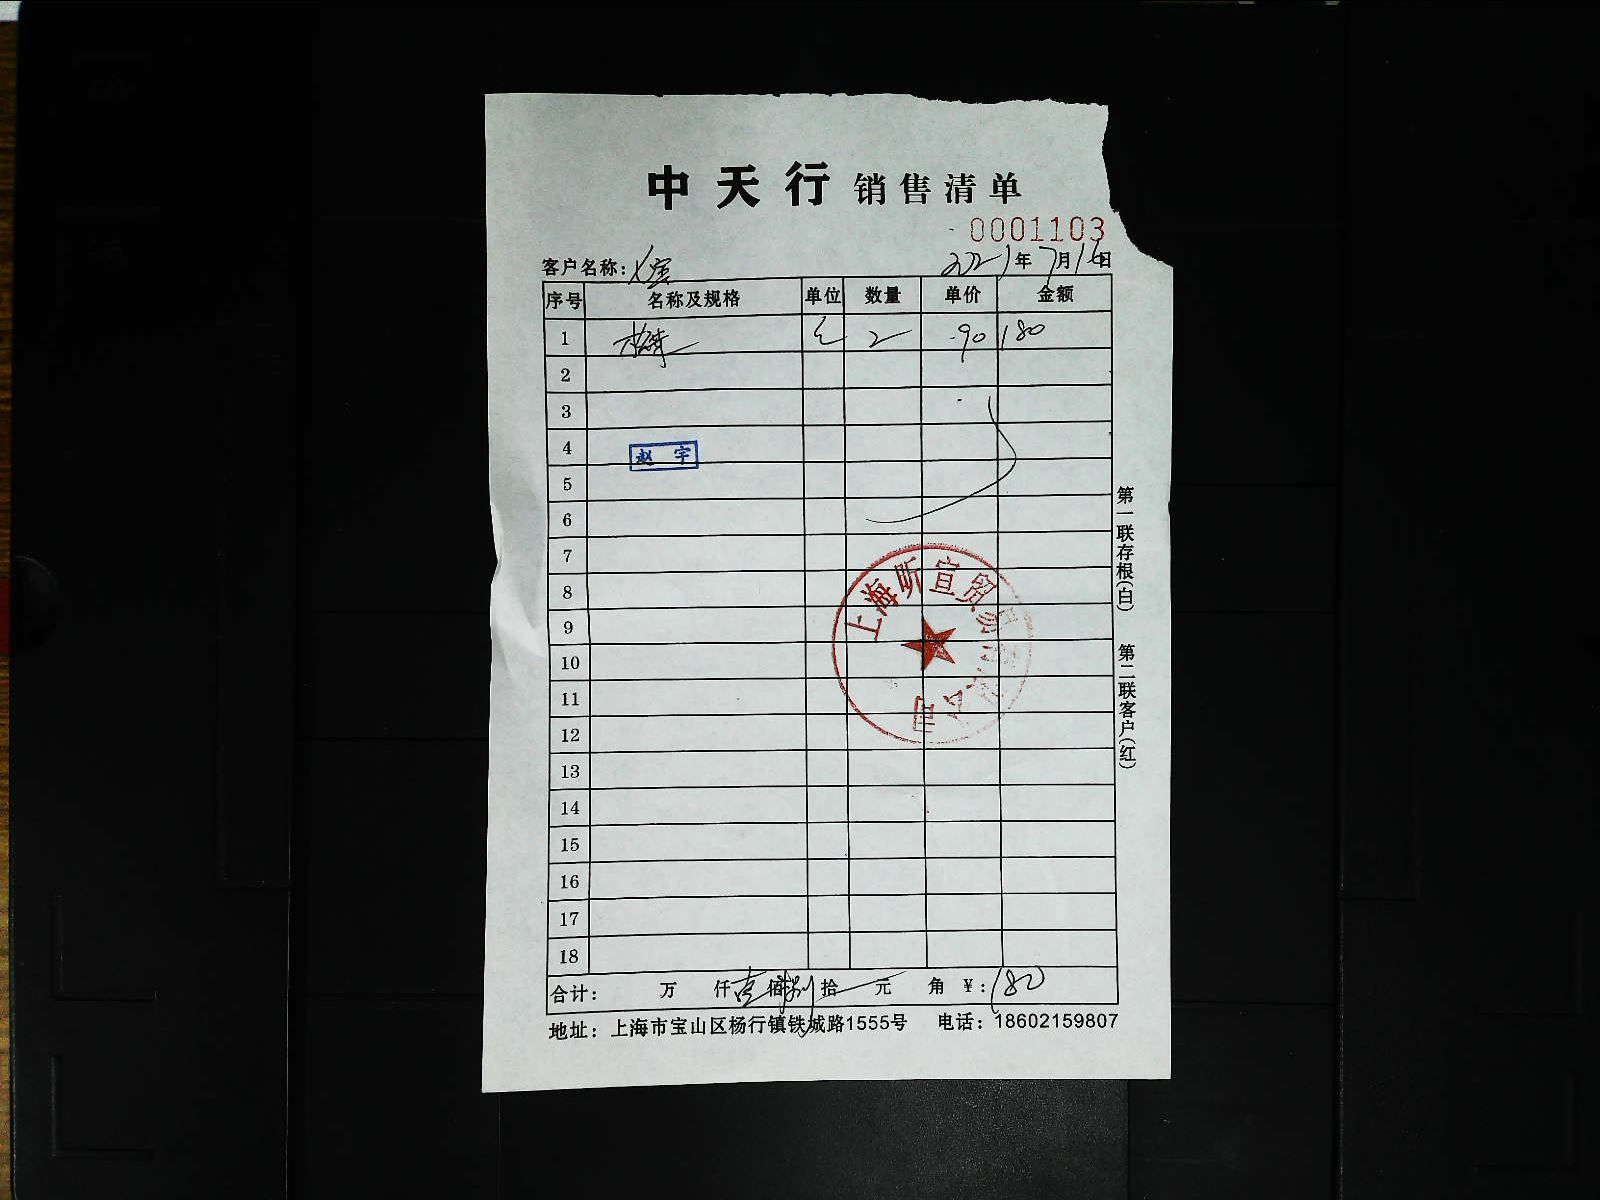 中天行 销售清单
0001103
客户名称： 2021年7月16日
序号 名称及规格 单位 数量 单价 金额
1 2 90 180
2
3
4
赵 宇
5
6
7
8
9
10
11
12
13
14
15
16
17
18
上海昕宣贸易有限公司
第一联存根(白) 第二联客户(红)
合计： 万 仟壹佰捌拾 元 角 ¥:180
地址：上海市宝山区杨行镇铁城路1555号 电话：18602159807